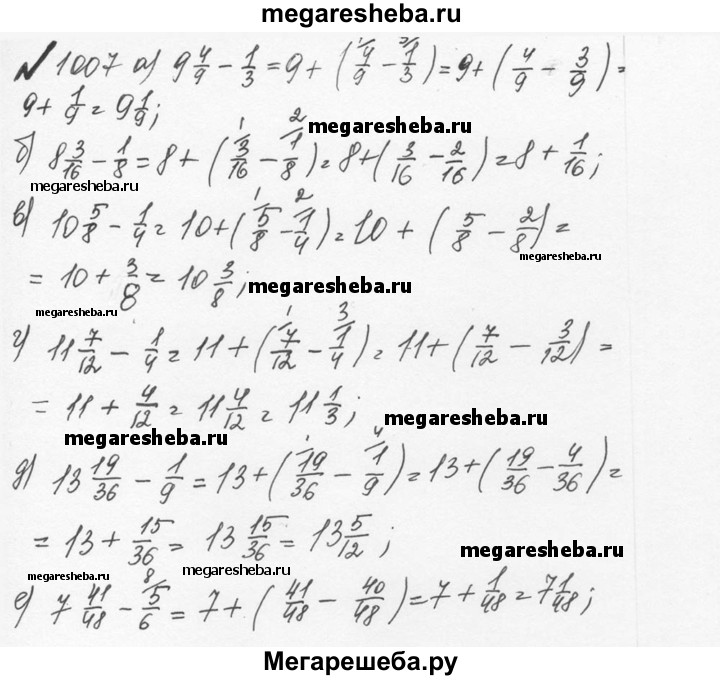 megaresheba.ru
№ 1007 а) 9 4/9 − 1/3 = 9 + (4/9 − 1/3) = 9 + (4/9 − 3/9) =
9 + 1/9 = 9 1/9;
megaresheba.ru
б) 8 3/16 − 1/8 = 8 + (3/16 − 1/8) = 8 + (3/16 − 2/16) = 8 + 1/16;
megaresheba.ru
в) 10 5/8 − 1/4 = 10 + (5/8 − 1/4) = 10 + (5/8 − 2/8) =
megaresheba.ru
= 10 + 3/8 = 10 3/8;
megaresheba.ru
megaresheba.ru
г) 11 7/12 − 1/4 = 11 + (7/12 − 1/4) = 11 + (7/12 − 3/12) =
= 11 + 4/12 = 11 4/12 = 11 1/3;
megaresheba.ru
megaresheba.ru
д) 13 19/36 − 1/9 = 13 + (19/36 − 1/9) = 13 + (19/36 − 4/36) =
= 13 + 15/36 = 13 15/36 = 13 5/12;
megaresheba.ru
megaresheba.ru
megaresheba.ru
е) 7 41/48 − 5/6 = 7 + (41/48 − 40/48) = 7 + 1/48 = 7 1/48;
Мегарешеба.ру